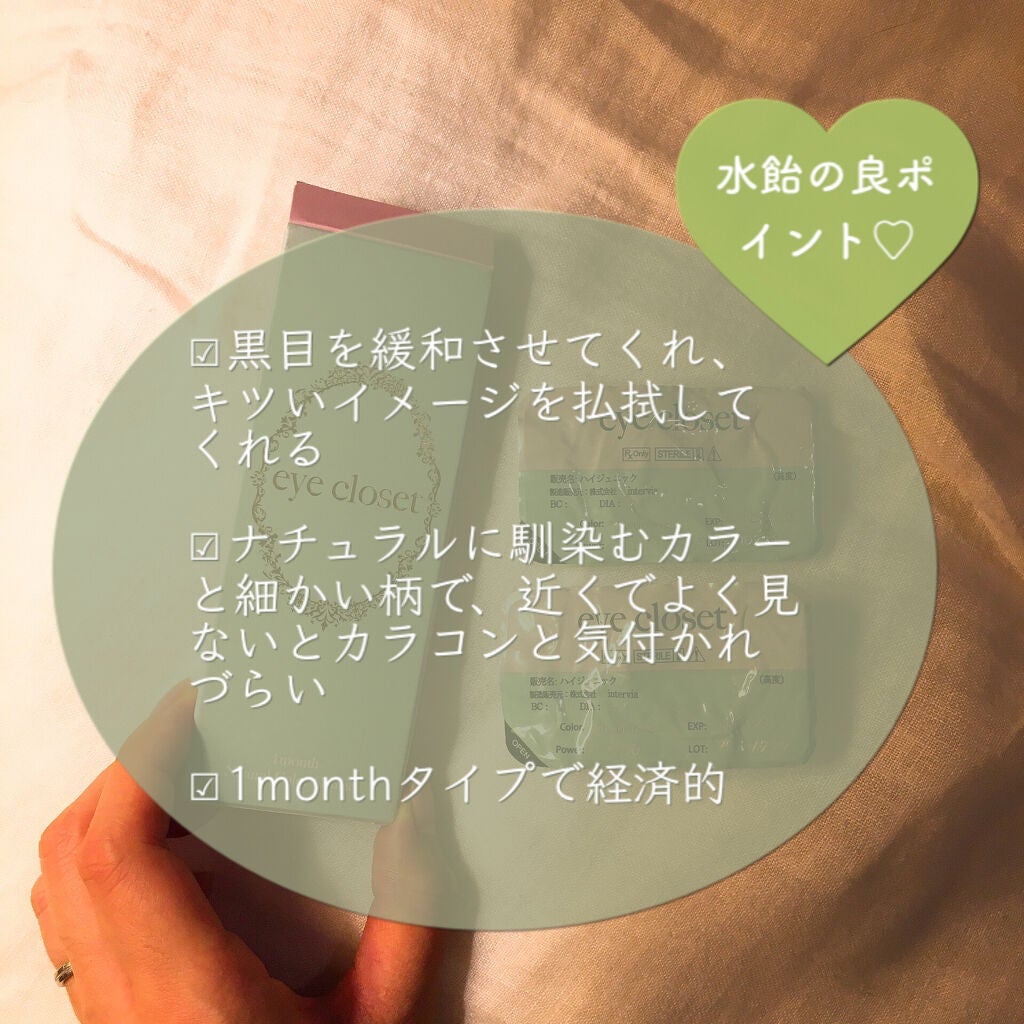 水飴の良ポ
イント♡
☑黒目を緩和させてくれ、
キツいイメージを払拭して
くれる
☑ナチュラルに馴染むカラー
と細かい柄で、近くでよく見
ないとカラコンと気付かれ
づらい
☑1monthタイプで経済的
eye closet
1month
eye closet
Rx Only STERILE
販売名:ハイジェニック
(高度)
製造販売元:株式会社 intervia
BC: DIA:
Color: EXP:
eye closet
STERILE
販売名:ハイジェニック
(高度)
製造販売元:株式会社 intervia
BC: DIA:
Color: EXP:
Power: LOT:
OPEN